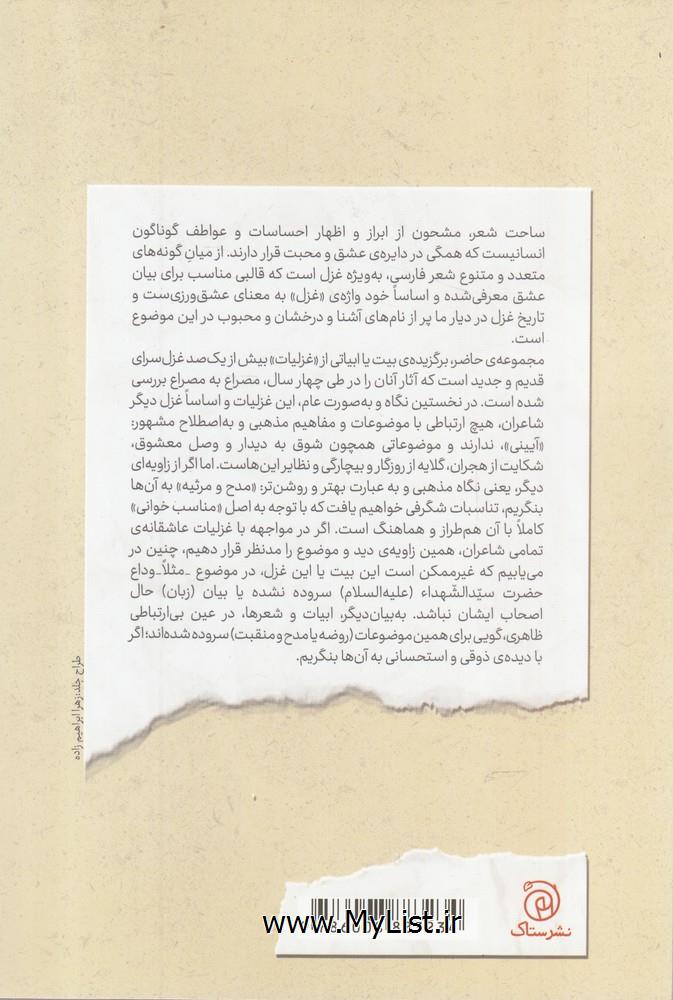 ساحت شعر، مشحون از ابراز و اظهار احساسات و عواطف گوناگون
انسانیست که همگی در دایره‌ی عشق و محبت قرار دارند. از میانِ گونه‌های
متعدد و متنوع شعر فارسی، به‌ویژه غزل است که قالبی مناسب برای بیان
عشق معرفی‌شده و اساساً خود واژه‌ی «غزل» به معنای عشق‌ورزی‌ست و
تاریخ غزل در دیار ما پر از نام‌های آشنا و درخشان و محبوب در این موضوع
است.
مجموعه‌ی حاضر، برگزیده‌ی بیت یا ابیاتی از «غزلیات» بیش از یک‌صد غزل‌سرای
قدیم و جدید است که آثار آنان را در طی چهار سال، مصراع به مصراع بررسی
شده است. در نخستین نگاه و به‌صورت عام، این غزلیات و اساساً غزل دیگر
شاعران، هیچ ارتباطی با موضوعات و مفاهیم مذهبی و به‌اصطلاح مشهور:
«آیینی»، ندارند و موضوعاتی همچون شوق به دیدار و وصل معشوق،
شکایت از هجران، گلایه از روزگار و بیچارگی و نظایر این‌هاست. اما اگر از زاویه‌ای
دیگر، یعنی نگاه مذهبی و به عبارت بهتر و روشن‌تر: «مدح و مرثیه» به آن‌ها
بنگریم، تناسبات شگرفی خواهیم یافت که با توجه به اصل «مناسب خوانی»
کاملاً با آن هم‌طراز و هماهنگ است. اگر در مواجهه با غزلیات عاشقانه‌ی
تمامی شاعران، همین زاویه‌ی دید و موضوع را مدنظر قرار دهیم، چنین در
می‌یابیم که غیرممکن است این بیت یا این غزل، در موضوع -مثلاً- وداع
حضرت سیّدالشّهداء (علیه‌السلام) سروده نشده یا بیان (زبان) حال
اصحاب ایشان نباشد. به‌بیان‌دیگر، ابیات و شعرها، در عین بی‌ارتباطی
ظاهری، گویی برای همین موضوعات (روضه یا مدح و منقبت) سروده شده‌اند؛ اگر
با دیده‌ی ذوقی و استحسانی به آن‌ها بنگریم.
طراح جلد: زهرا ابراهیم زاده
نشر ستاک
www.MyList.ir